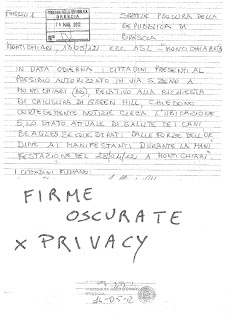 FOGLIO 1
PROCURA DELLA REPUBBLICA
BRESCIA
SPETT.LE PROCURA DELLA
REPUBBLICA DI
BRESCIA
MONTICHIARI
ASL - MONTICHIARI
IN DATA ODIERNA I CITTADINI PRESENTI AL
PRESIDIO AUTORIZZATO IN VIA S. ZENO A
MONTICHIARI (BS), RELATIVO ALLA RICHIESTA
DI CHIUSURA DI GREEN HILL, CHIEDONO
CORTESEMENTE NOTIZIE CIRCA L'UBICAZIONE
E LO STATO ATTUALE DI SALUTE DEI CANI
BEAGLES SEQUESTRATI DALLE FORZE DELL'OR
DINE AI MANIFESTANTI DURANTE LA MANI
FESTAZIONE DEL 28/04/12 A MONTICHIARI
I CITTADINI FIRMANO:
FIRME
OSCURATE
X PRIVACY